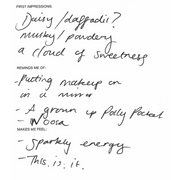 FIRST IMPRESSIONS:
Daisy/daffodil?
musky/powdery
a cloud of sweetness
REMINDS ME OF:
- Putting makeup on
in a mirror
- A grown up Polly Pocket
- Noosa
MAKES ME FEEL:
- Sparkly energy
- This. is. it.